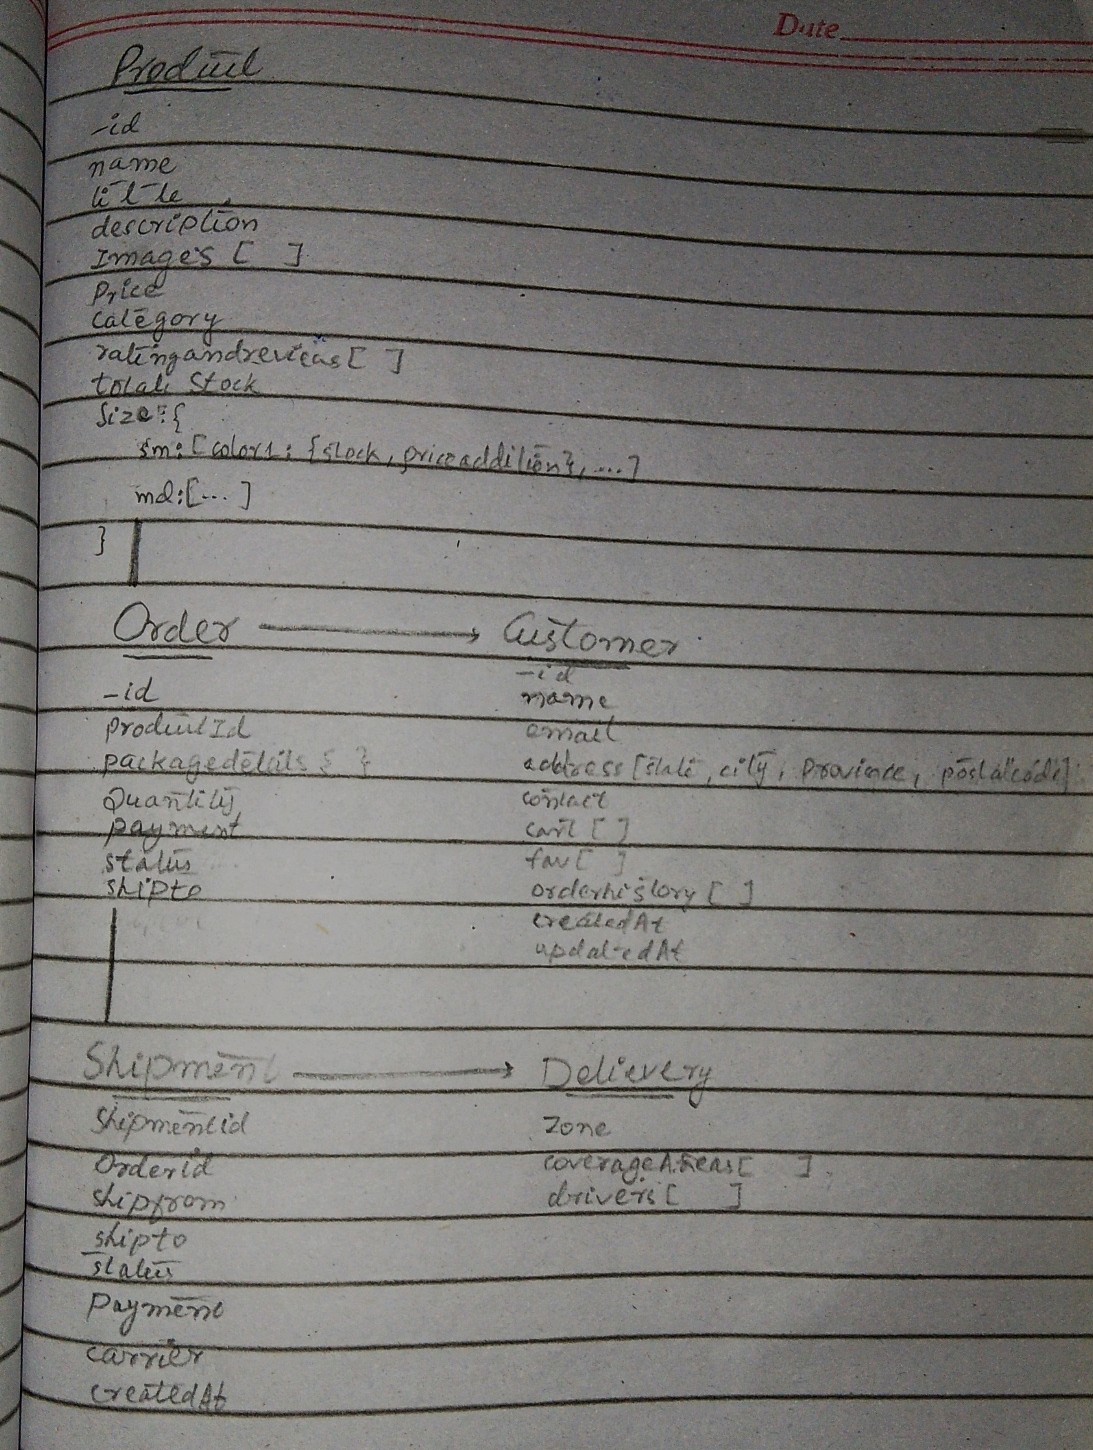 Date
Product
_id
name
title
description
Images [ ]
Price
category
ratingandreviews [ ]
total Stock
Size : {
sm : [ color1 : { stock, priceaddition }, ... ]
md : [ ... ]
}
Order → Customer
_id
productId
packagedetails { }
Quantity
payment
status
shipto
_id
name
email
address [ state, city, Province, postalcode ]
contact
cart [ ]
fav [ ]
orderhistory [ ]
createdAt
updatedAt
Shipment → Delievery
shipmentid
Orderid
shipfrom
shipto
status
Payment
carrier
createdAt
Zone
coverageAreas [ ]
drivers [ ]